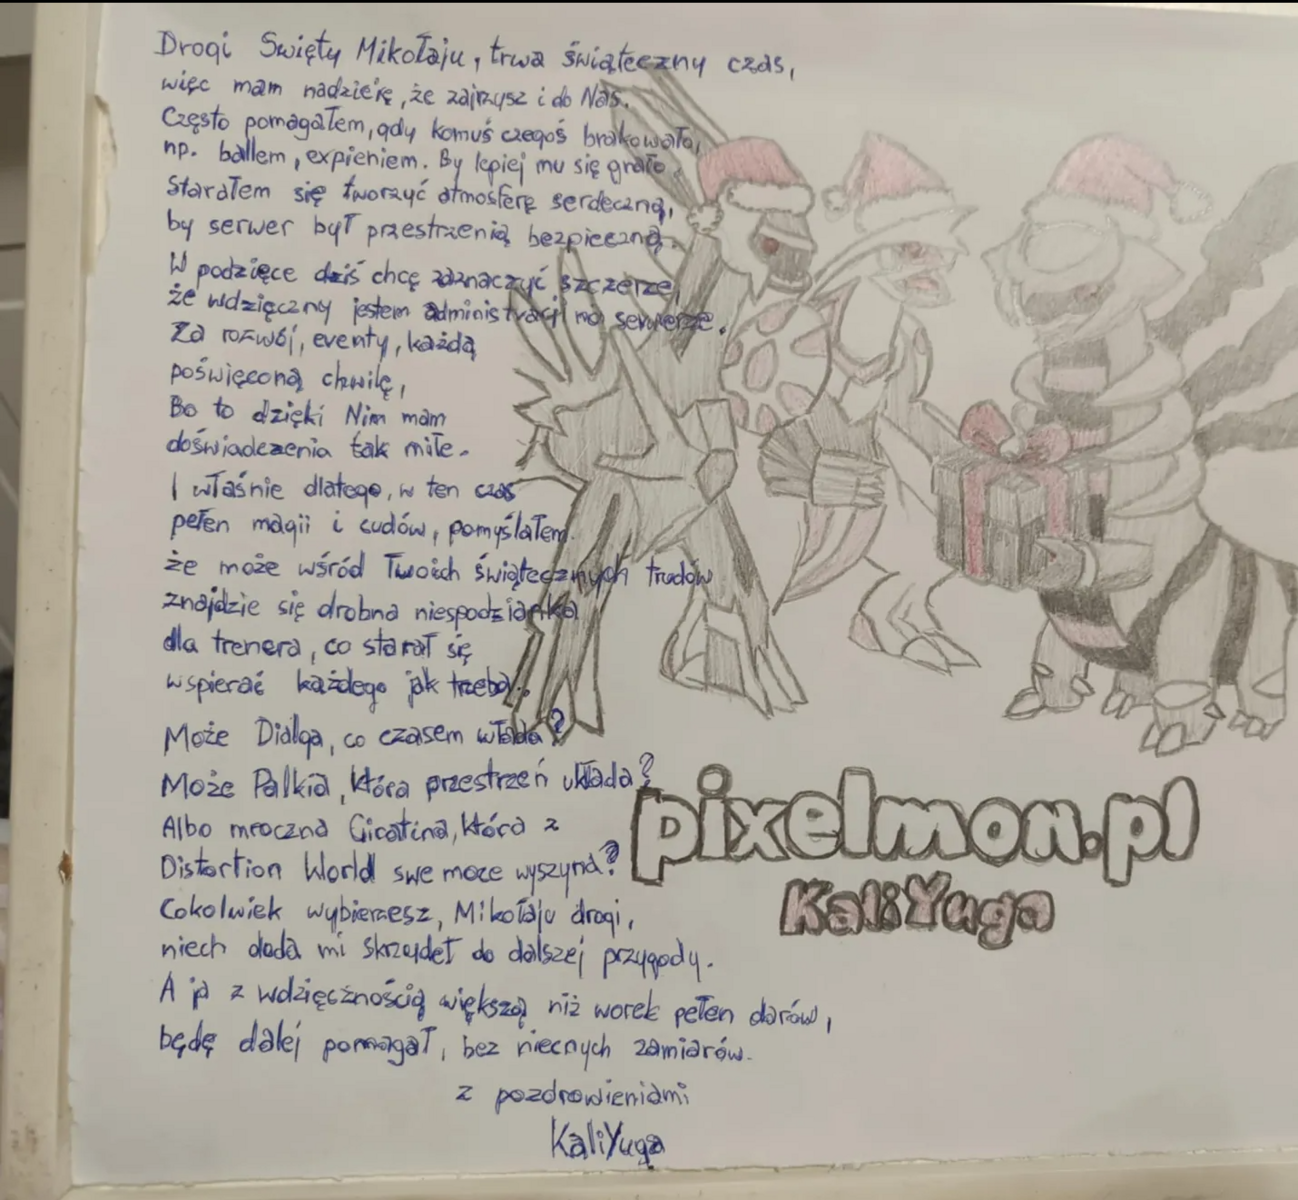 Drogi Święty Mikołaju, trwa świąteczny czas,
więc mam nadzieię, że zajrzysz i do Nas.
Często pomagałem, gdy komuś czegoś brakowało,
np. ballem, expieniem. By lepiej mu się grało.
Starałem się tworzyć atmosferę serdeczną,
by serwer był przestrzenią bezpieczną.
W podzięce dziś chcę zaznaczyć szczerze,
że wdzięczny jestem administracji na serwerze.
Za rozwój, eventy, każdą
poświęconą chwilę,
Bo to dzięki Nim mam
doświadczenia tak miłe.
I właśnie dlatego, w ten czas
pełen magii i cudów, pomyślałem
że może wśród Twoich świątecznych trudów
znajdzie się drobna niespodzianka
dla trenera, co starał się
wspierać każdego jak trzeba.
Może Dialga, co czasem włada?
Może Palkia, która przestrzeń układa?
Albo mroczna Giratina, która z
Distortion World swe moce wyszyna?
Cokolwiek wybierzesz, Mikołaju drogi,
niech doda mi skrzydeł do dalszej przygody.
A ja z wdzięcznością większą niż worek pełen darów,
będę dalej pomagał, bez niecnych zamiarów.
z pozdrowieniami
KaliYuga
pixelmon.pl
KaliYuga